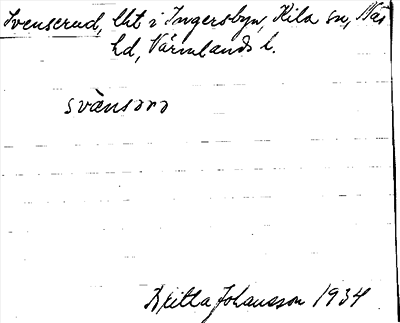 Svenserud, lht i Ingersbyn, Kila sn, Näs
hd, Värmlands l.
svä̀nsərə
Britta Johansson 1934